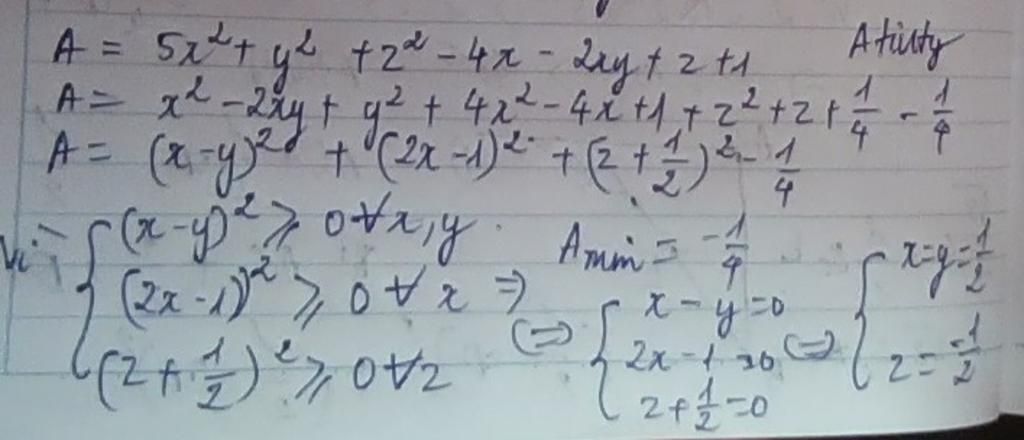 A = 5x² + y² + z² - 4x - 2xy + z + 1
A = x² - 2xy + y² + 4x² - 4x + 1 + z² + z + 1/4 - 1/4
A = (x - y)² + (2x - 1)² + (z + 1/2)² - 1/4
Vì { (x - y)² ⩾ 0 ∀ x, y
(2x - 1)² ⩾ 0 ∀ x ⇒
(z + 1/2)² ⩾ 0 ∀ z
A min = -1/4
⇔ { x - y = 0
2x - 1 = 0 ⇔
z + 1/2 = 0
{ x = y = 1/2
z = -1/2